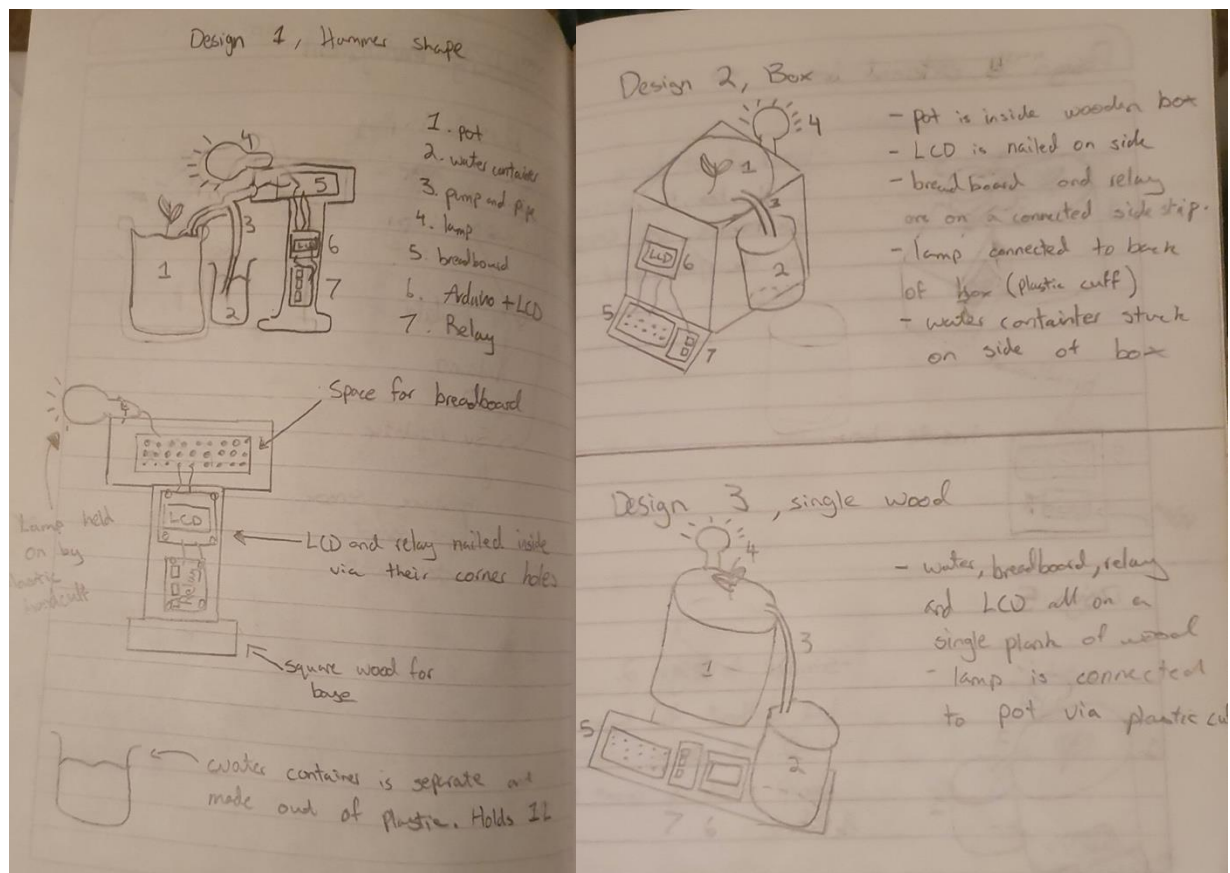 Design 1, Hammer shape
4
5
3
1
2
LCD
6
7
1. pot
2. water container
3. pump and pipe
4. lamp
5. breadboard
6. Arduino + LCD
7. Relay
Space for breadboard
4
LCD
Lamp held
on by
LCD and relay nailed inside
via their corner holes
square wood for
base
water container is seperate and
made oud of plastic. Holds 1L
Design 2, Box
4
1
3
2
LCD
6
5
7
- pot is inside wooden box
- LCD is nailed on side
- breadboard and relay
are on a connected side strip.
- lamp connected to back
of box (plastic cuff)
- water containter stuck
on side of box
Design 3, single wood
4
3
1
5
2
7 6
- water, breadboard, relay
and LCD all on a
single plank of wood
- lamp is connected
to pot via plastic